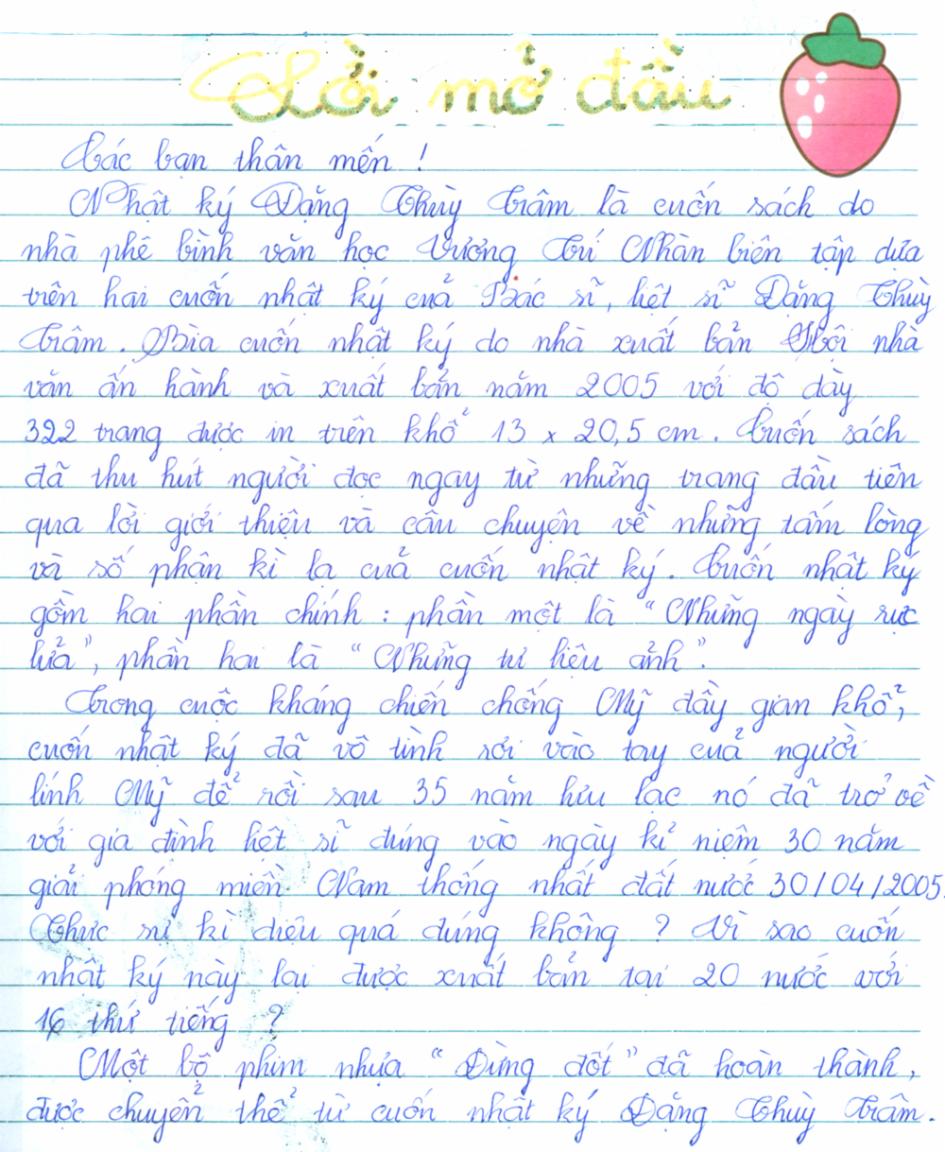 Lời mở đầu
Các bạn thân mến !
Nhật ký Đặng Thuỳ Trâm là cuốn sách do
nhà phê bình văn học Vương Trí Nhàn biên tập dựa
trên hai cuốn nhật ký của Bác sĩ, liệt sĩ Đặng Thuỳ
Trâm. Bìa cuốn nhật ký do nhà xuất bản Hội nhà
văn ấn hành và xuất bản năm 2005 với độ dày
322 trang được in trên khổ 13 x 20,5 cm. Cuốn sách
đã thu hút người đọc ngay từ những trang đầu tiên
qua lời giới thiệu và câu chuyện về những tấm lòng
và số phận kì lạ của cuốn nhật ký. Cuốn nhật ký
gồm hai phần chính : phần một là "Những ngày rực
lửa", phần hai là "Những tư liệu ảnh".
Trong cuộc kháng chiến chống Mỹ đầy gian khổ,
cuốn nhật ký đã vô tình rơi vào tay của người
lính Mỹ để rồi sau 35 năm lưu lạc nó đã trở về
với gia đình liệt sĩ đúng vào ngày kỉ niệm 30 năm
giải phóng miền Nam thống nhất đất nước 30/04/2005.
Thực sự kì diệu quá đúng không ? Vì sao cuốn
nhật ký này lại được xuất bản tại 20 nước với
16 thứ tiếng ?
Một bộ phim nhựa "Đừng đốt" đã hoàn thành,
được chuyển thể từ cuốn nhật ký Đặng Thuỳ Trâm.